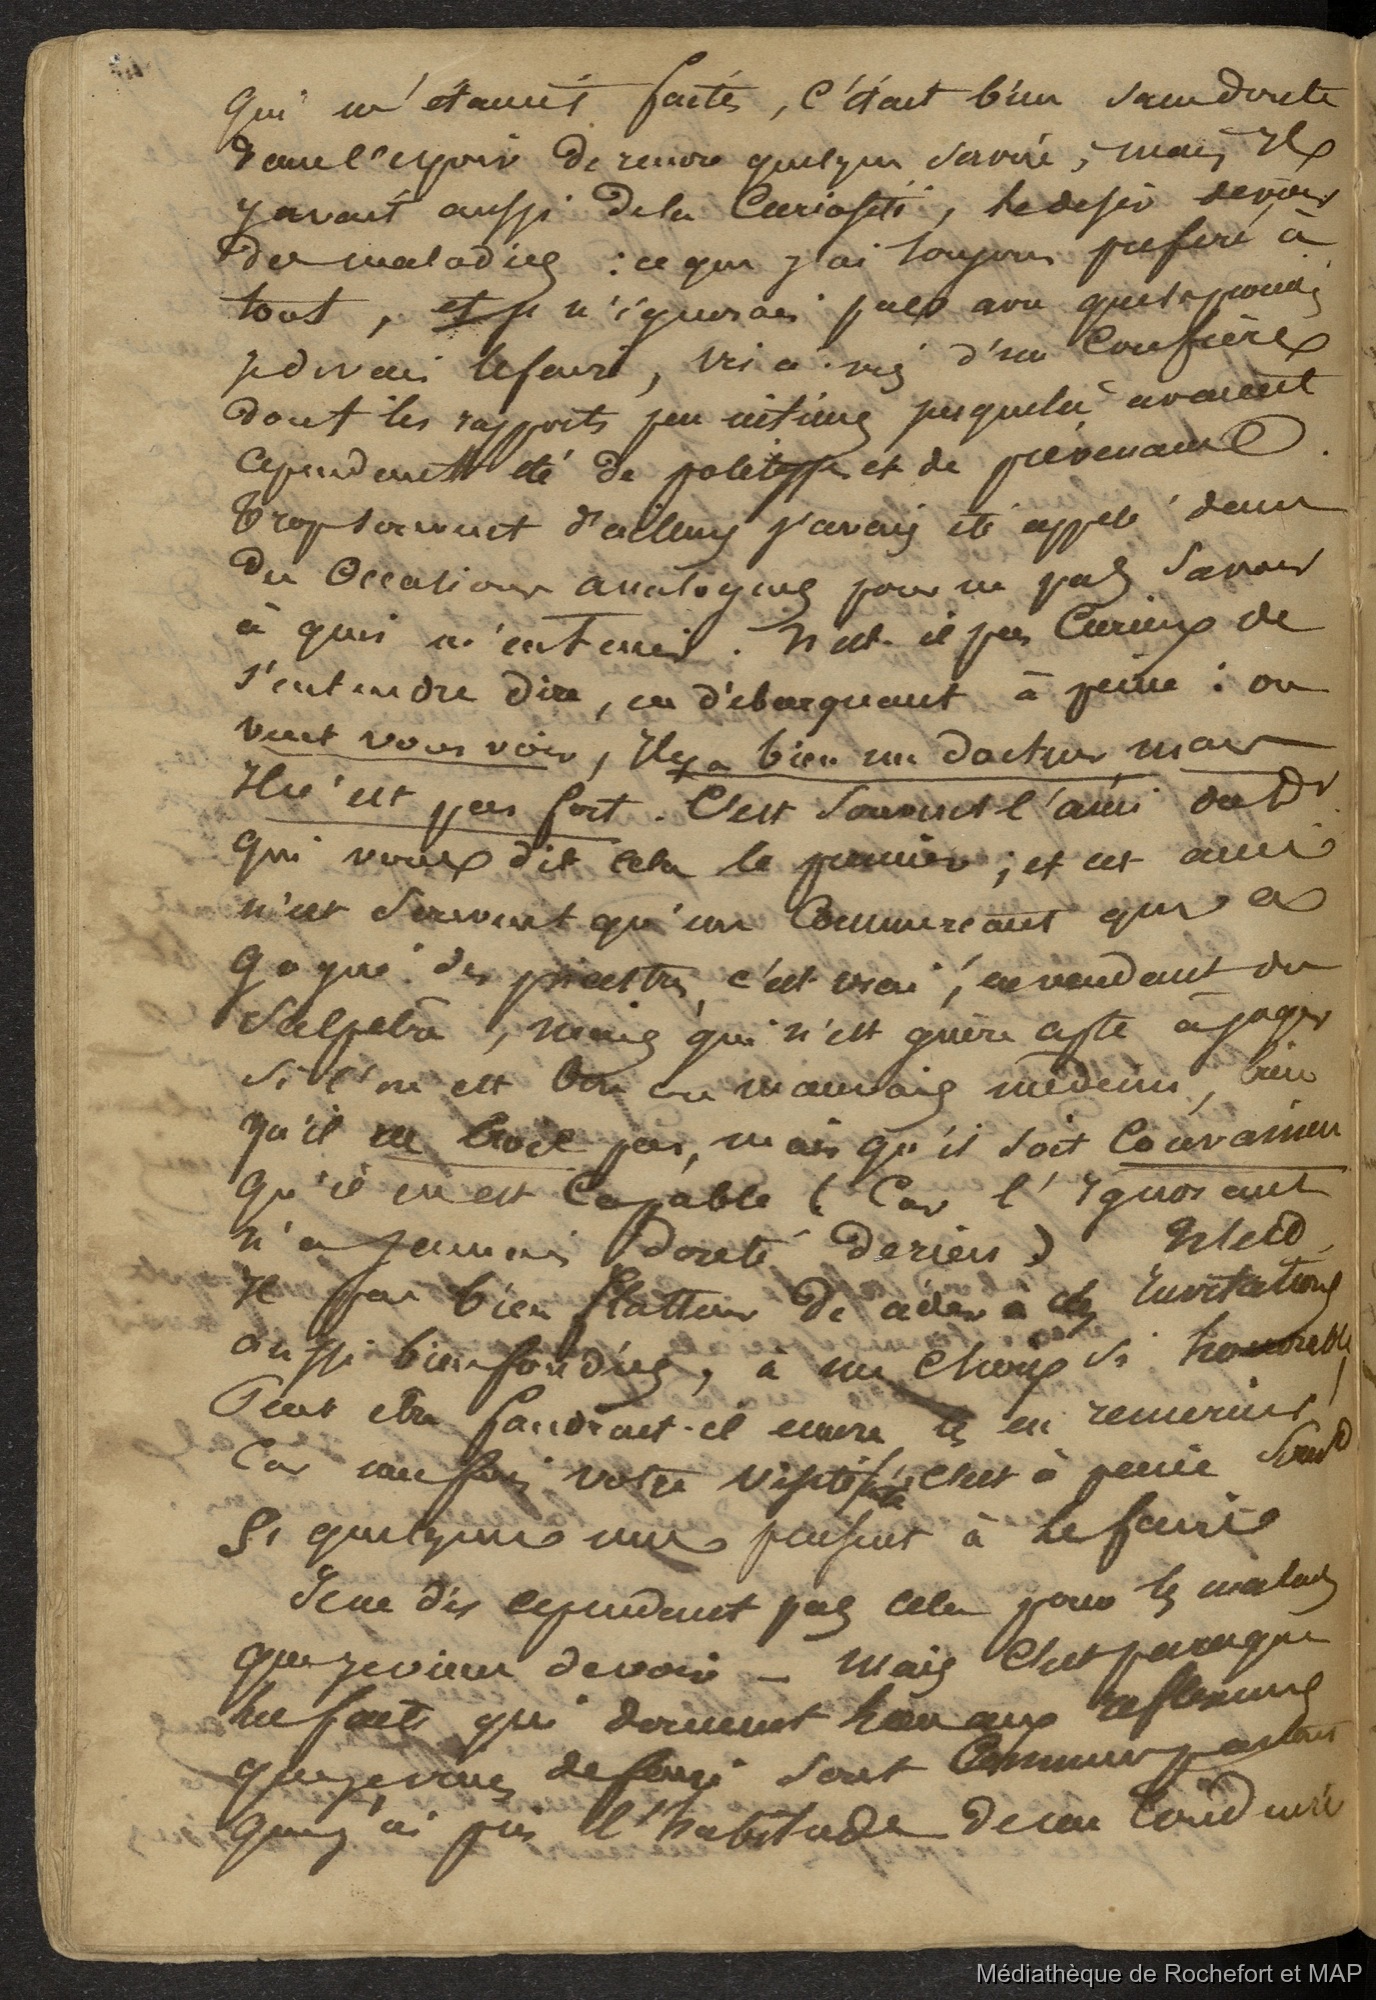 qui m'étaient faites, c'était bien sans doute
dans l'espoir de rendre quelque service, mais Il
y avait aussi de la Curiosité, le desir de voir
des maladies : ce que j'ai toujours preferé à
tout, et je n'ignorais pas avec quels
je devais le faire, vis à vis d'un Confrère
dont les rapports peu intimes jusque là avaient
cependant été de politesse et de prévenance.
Trop souvent d'ailleurs j'avais été appelé dans
des Occasions analogues pour ne pas savoir
à quoi m'en tenir. N'est-il pas Curieux de
s'entendre dire, en débarquant à peine : on
veut vous voir, Il y a bien un docteur mais
Il n'est pas fort. C'est souvent l'ami du Dr
qui vous dit cela le premier ; et cet ami
n'est souvent qu'un Commerçant qui a
gagné des piastres, c'est vrai, en vendant du
Salpêtre, mais qui n'est guère apte à juger
si l'on est bon ou mauvais médecin, bien
qu'il ne croie pas, mais qu'il soit Convaincu
qu'il en est Capable (Car l'Ignorant
n'a jamais douté de rien)
Il pas bien flatteur de céder à des Invitations
aussi bien fondées, à un Choix si honorable,
Peut être faudrait-il encore les en remercier !
Car une fois votre visite faite, c'est à peine
si quelques uns pensent à le faire
Je ne dis cependant pas cela pour les malades
que je viens de voir — Mais c'est parce que
les faits qui donnent lieu aux reflexions
que je viens de faire sont Communs partout
que j'ai pris l'habitude de me Conduire
Médiathèque de Rochefort et MAP